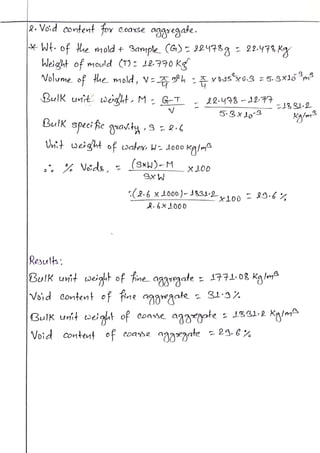 2. Void content for coarse aggregate.
* Wt. of the mold + Sample (G) = 22478g = 22.478 Kg
Weight of mould (T) = 12.770 Kg
Volume of the mold, V = π/4 d²h = π/4 × 0.15² × 0.3 = 5.3×10⁻³ m³
Bulk unit weight, M = (G-T)/V = (22.478 - 12.77)/(5.3×10⁻³) = 1831.2 Kg/m³
Bulk specific gravity, S = 2.6
Unit weight of water, W = 1000 Kg/m³
∴ % Voids, = ((S×W)-M)/(S×W) × 100
= ((2.6 × 1000) - 1831.2)/(2.6×1000) ×100 = 29.6 %
Results:
Bulk unit weight of fine aggregate = 1771.08 Kg/m³
Void content of fine aggregate = 31.9 %
Bulk unit weight of coarse aggregate = 1831.2 Kg/m³
Void content of coarse aggregate = 29.6 %